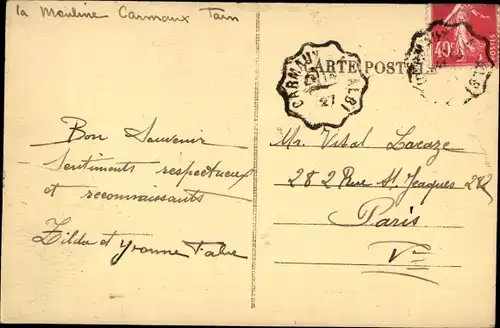 la Mouline Carmaux Tarn
CARTE POSTALE
CARMAUX
ALBI
27
40c
POSTES
ALBI
Bon Souvenir
Sentiments respectueux
et reconnaissants
Zilda et Yvonne Fabre
Mr. Vital Lacaze
282 Rue St. Jacques 282
Paris
Ve